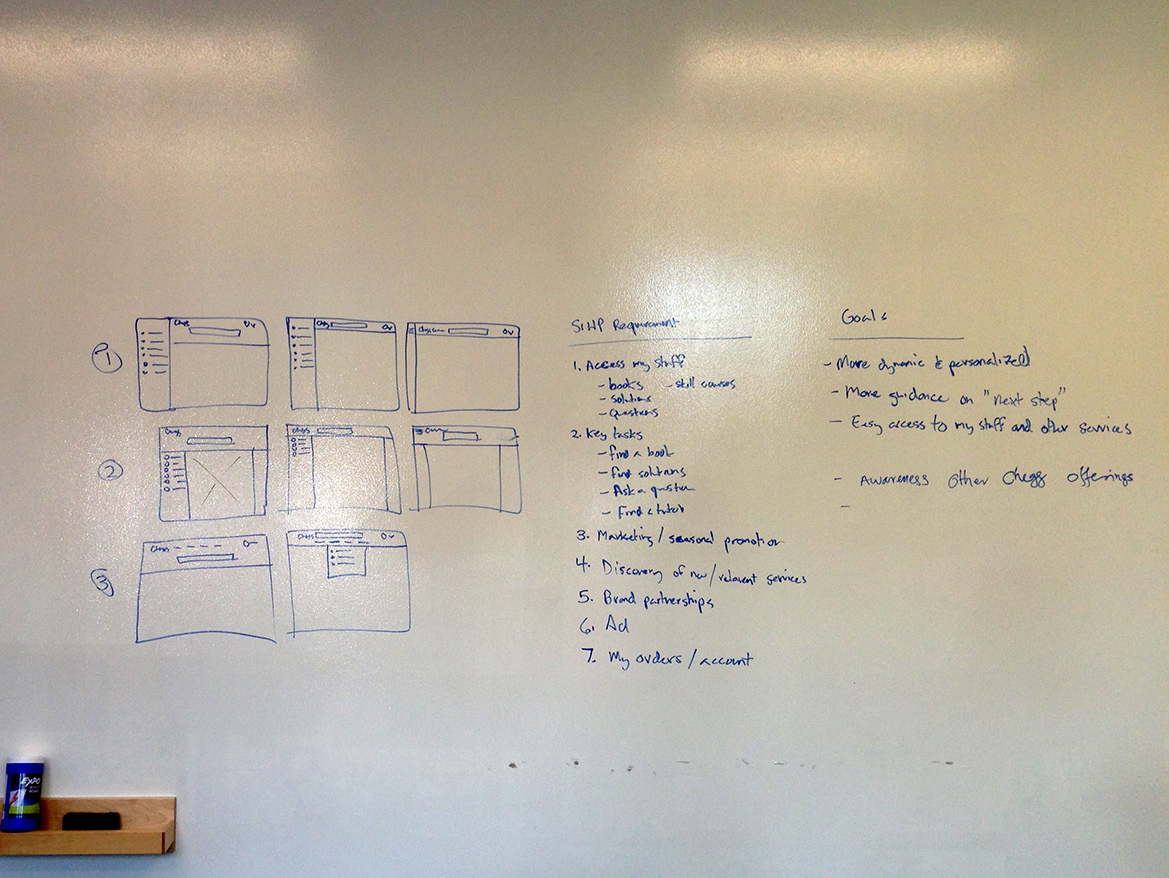 1
Chegg
Chegg
Chegg
2
Chegg
Chegg
3
Chegg
Chegg
SIHP Requirement
1. Access my stuff
- books - skill courses
- solutions
- Questions
2. Key tasks
- find a book
- find solutions
- Ask a question
- Find a tutor
3. Marketing / seasonal promotion
4. Discovery of new / relavent services
5. Brand partnerships
6. Ad
7. My orders / account
Goals
- More dynamic & personalized
- More guidance on "next step"
- Easy access to my stuff and other services
- Awareness other Chegg offerings
-
EXPO